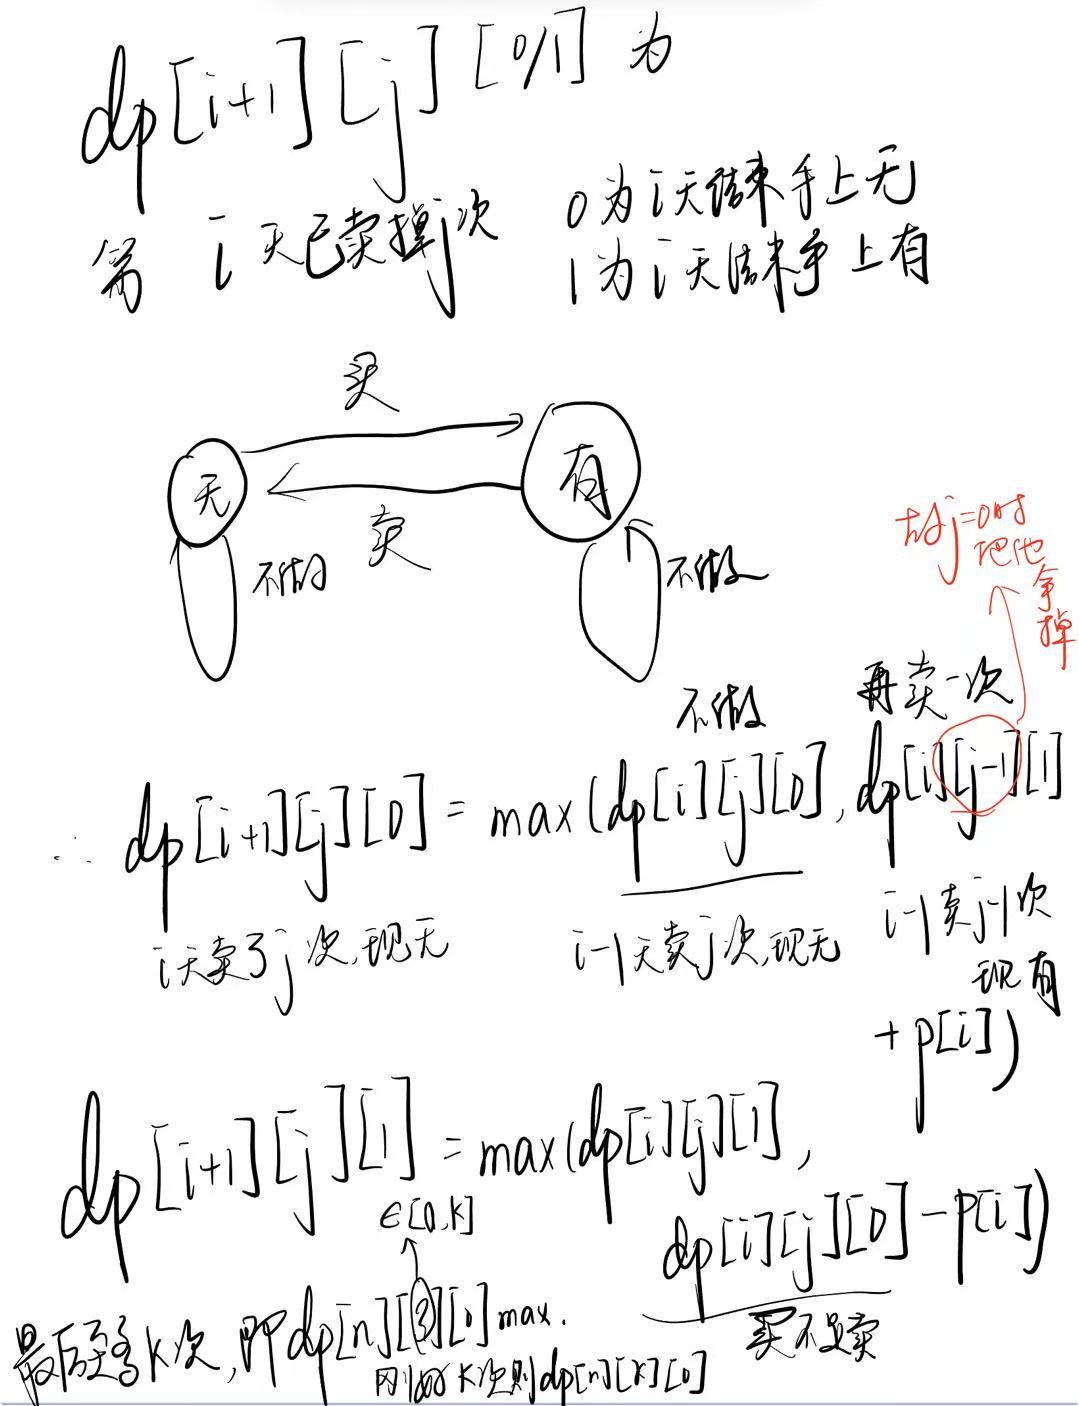 dp[i+1][j][0/1] 为
第 i 天已卖掉j次
0为i天结束手上无
1为i天结束手上有
买
无
有
卖
不做
不做
j=0时
把他
拿
掉
不做
再卖一次
∴ dp[i+1][j][0] = max(dp[i][j][0], dp[i][j-1][1]
i天卖了j次,现无
i-1天卖j次,现无
i-1卖j-1次
现有
+p[i])
dp[i+1][j][1] = max(dp[i][j][1],
∈[0,k]
dp[i][j][0]-p[i])
买不是卖
最后至多k次,即dp[n][][0]max.
刚好k次则dp[n][k][0]